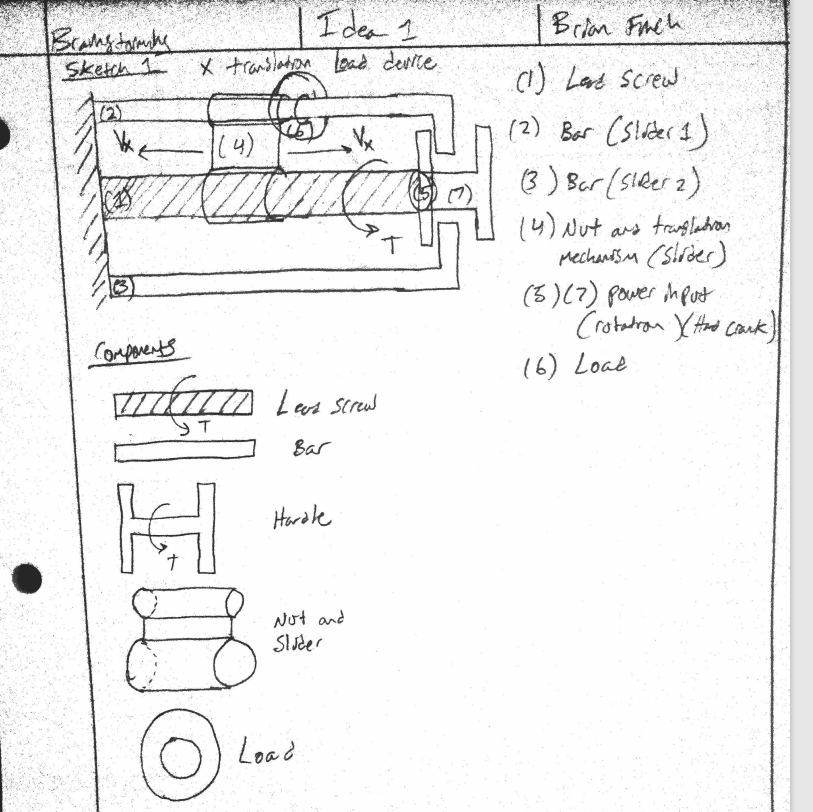 Brainstorming
Idea 1
Brian Finch
Sketch 1 x translation Load device
(2)
(6)
Vx
(4)
Vx
(1)
(5)
(7)
T
(3)
(1) Lead Screw
(2) Bar (Slider 1)
(3) Bar (Slider 2)
(4) Nut and translation
Mechanism (Slider)
(5)(7) power input
(rotation)(Hand crank)
(6) Load
Components
T
Lead Screw
Bar
T
Handle
Nut and
Slider
Load